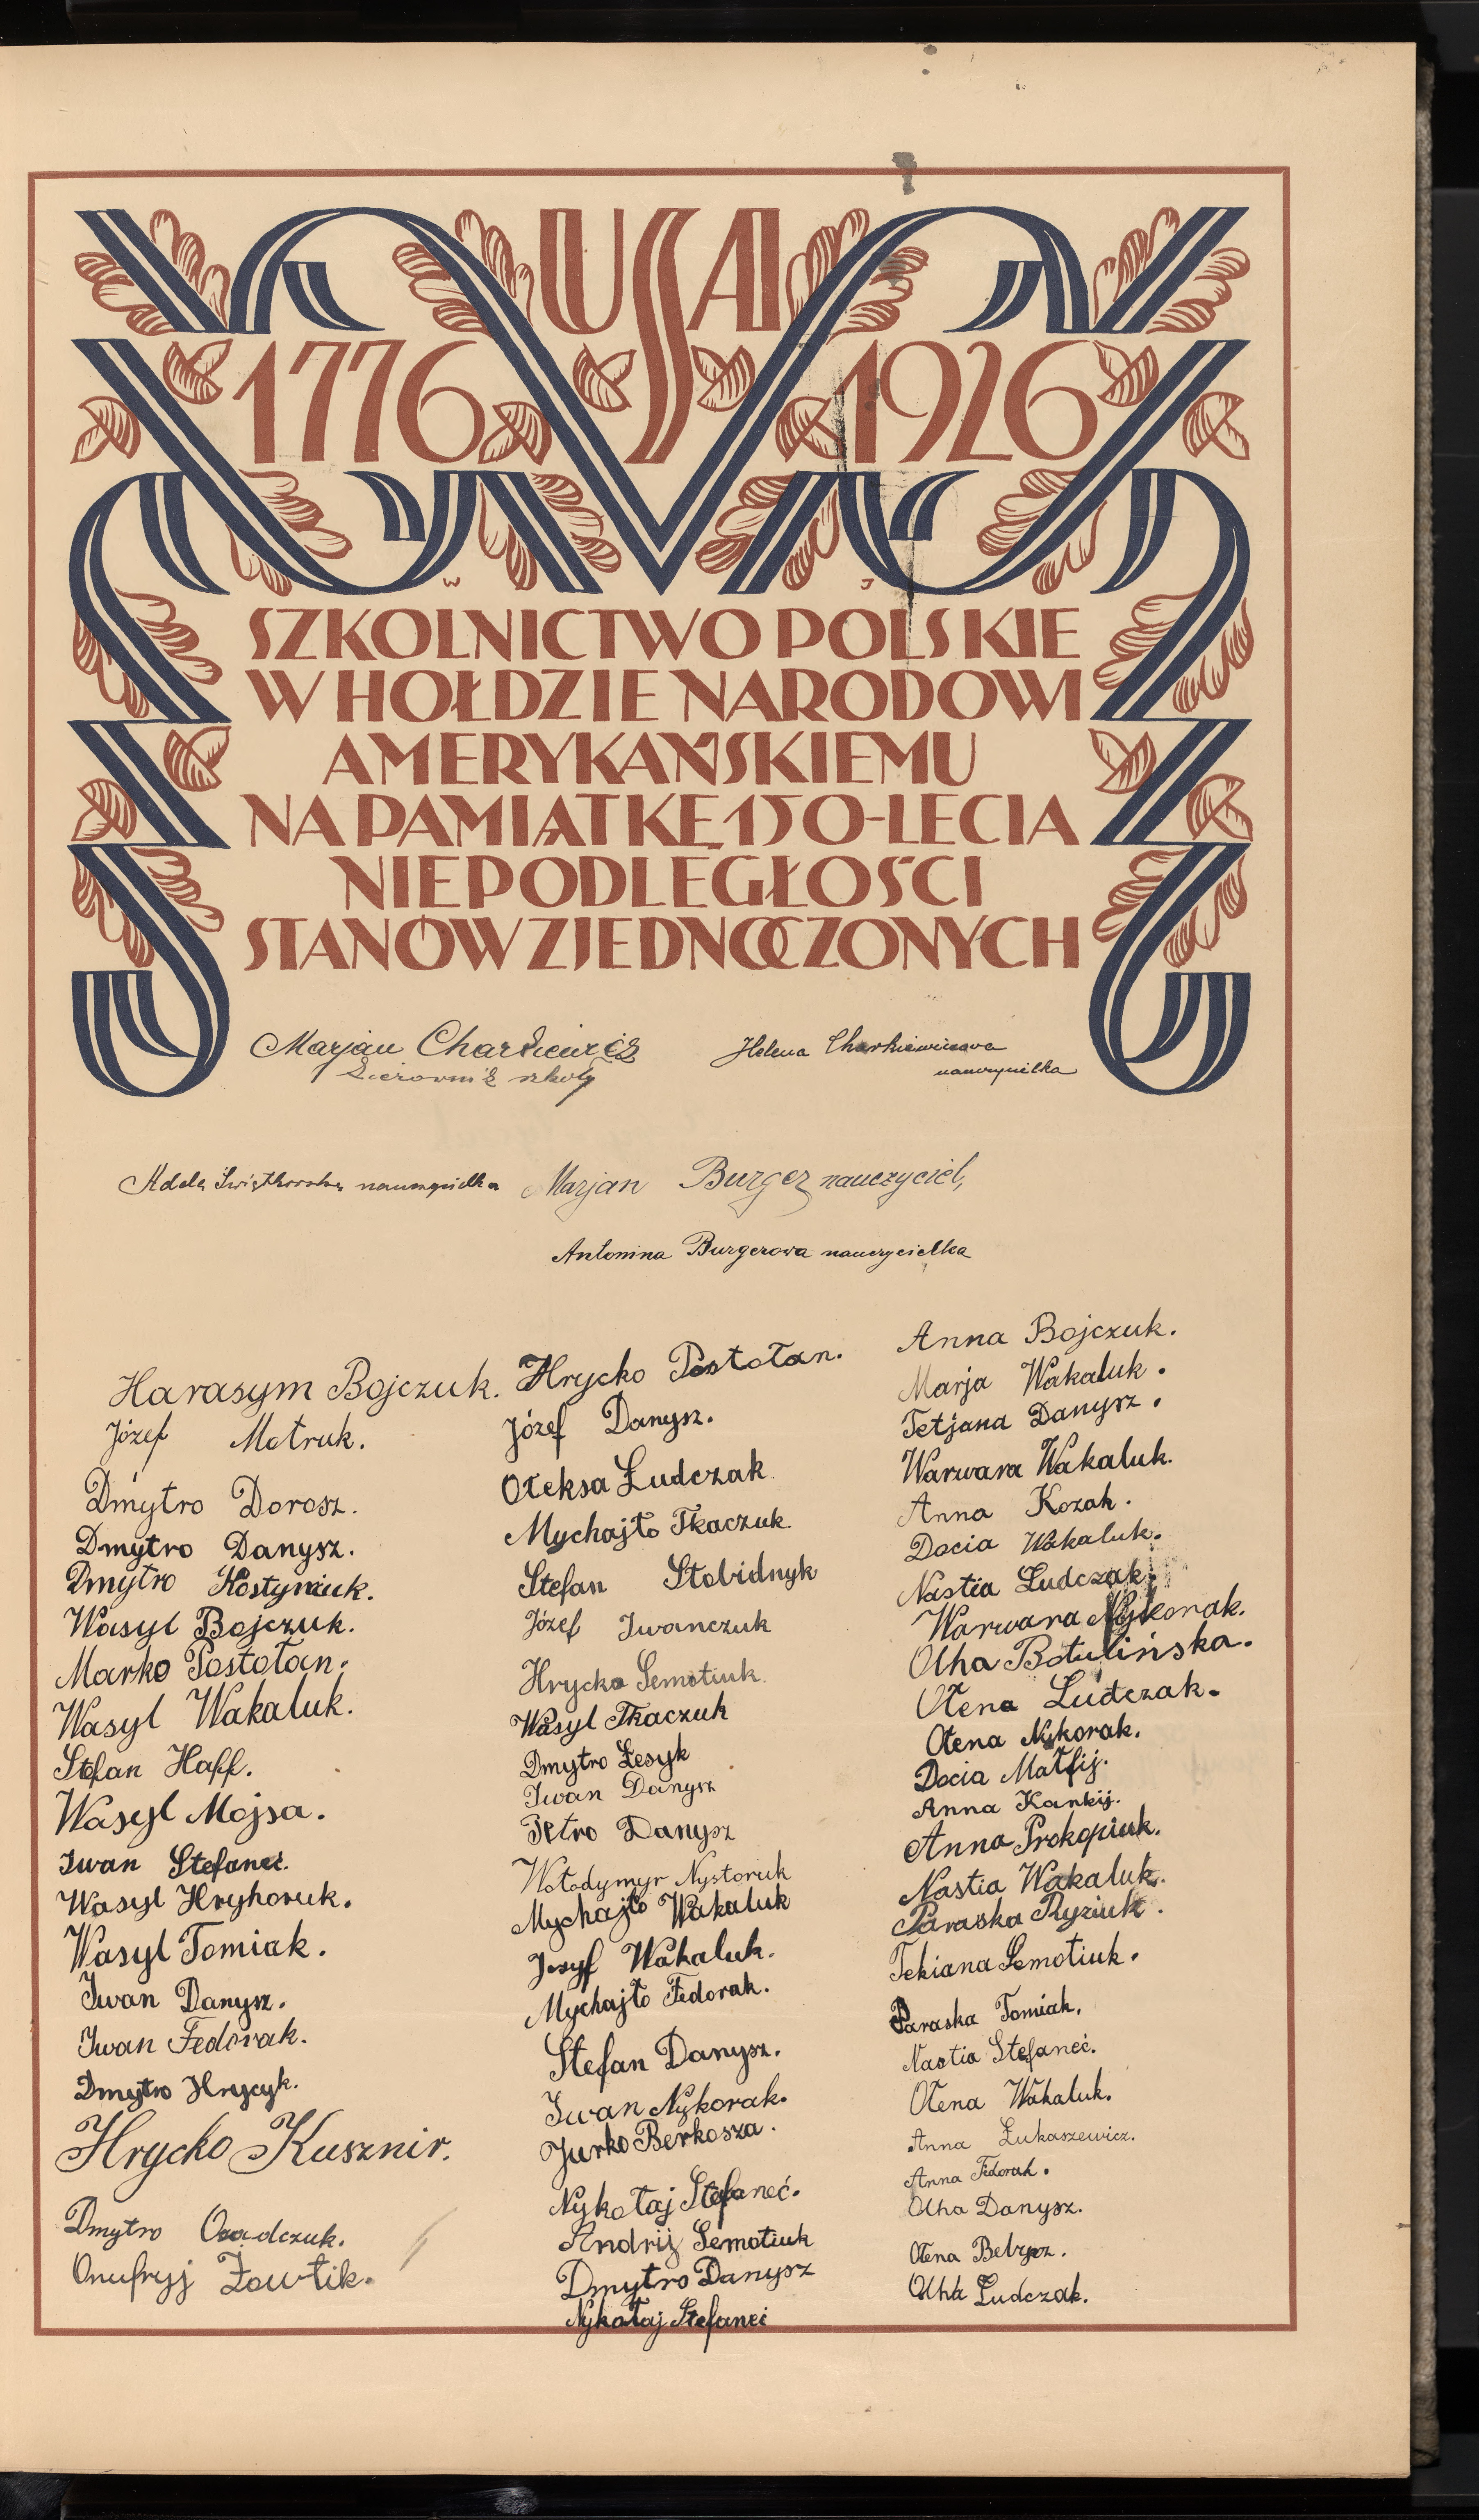 USA
1776 1926
W J
SZKOLNICTWO POLSKIE
W HOŁDZIE NARODOWI
AMERYKAŃSKIEMU
NA PAMIĄTKĘ 150-LECIA
NIEPODLEGŁOŚCI
STANÓW ZJEDNOCZONYCH
Marjan Charkiewicz
kierownik szkoły
Helena Charkiewiczowa
nauczycielka
Adela Świątkowska nauczycielka
Marjan Burger nauczyciel,
Antonina Burgerowa nauczycielka
Harasym Bojczuk.
Józef Motruk.
Dmytro Dorosz.
Dmytro Danysz.
Dmytro Kostyniuk.
Wasyl Bojczuk.
Marko Postołan.
Wasyl Wakaluk.
Stefan Haff.
Wasyl Mojsa.
Iwan Stefaneć.
Wasyl Hryhoruk.
Wasyl Tomiak.
Iwan Danysz.
Iwan Fedorak.
Dmytro Hrycyk.
Hrycko Kusznir.
Dmytro Osadczuk.
Onufryj Żowtik.
Hrycko Postołan.
Józef Danysz.
Ołeksa Łudczak.
Mychajło Tkaczuk.
Stefan Słobidnyk
Józef Iwanczuk
Hrycko Semotiuk.
Wasyl Tkaczuk
Dmytro Łesyk
Iwan Danysz
Petro Danysz
Wołodymyr Nystoruk
Mychajło Wakaluk
Josyf Wakaluk.
Mychajło Fedorak.
Stefan Danysz.
Iwan Nykorak.
Jurko Berkosza.
Nykołaj Stefaneć.
Andrij Semotiuk
Dmytro Danysz
Nykołaj Stefaneć
Anna Bojczuk.
Marja Wakaluk.
Tetjana Danysz.
Warwara Wakaluk.
Anna Kozak.
Docia Wakaluk.
Nastia Łudczak.
Warwara Nykorak.
Olha Botulińska.
Ołena Łudczak.
Ołena Nykorak.
Docia Matfij.
Anna Kankij.
Anna Prokopiuk.
Nastia Wakaluk.
Paraska Ryziuk.
Tekiana Semotiuk.
Paraska Tomiak.
Nastia Stefaneć.
Ołena Wakaluk.
Anna Łukaszewicz.
Anna Fedorak.
Olha Danysz.
Ołena
Olha Łudczak.